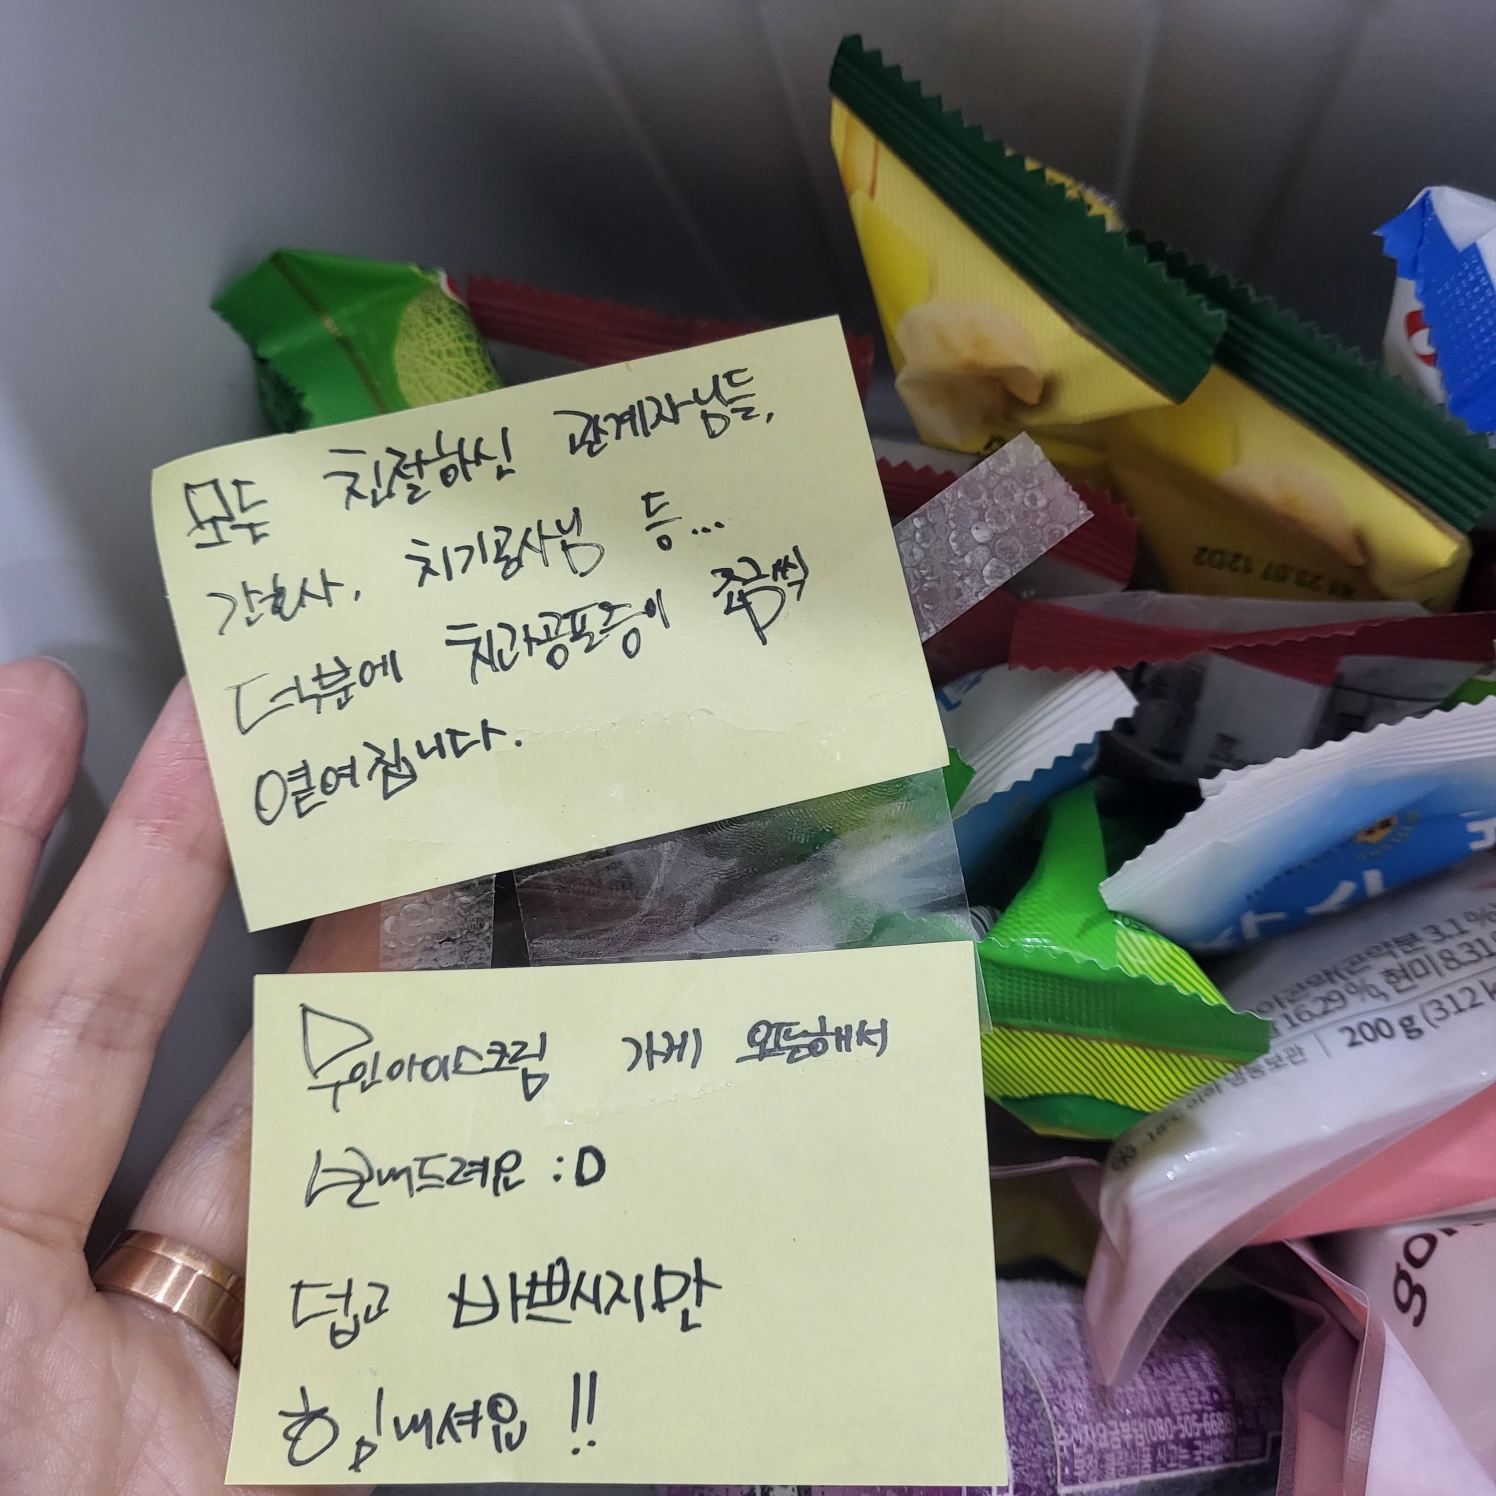 모두 친절하신 관계자님들,
간호사, 치기공사님 등...
덕분에 치과공포증이 조금씩
옅여집니다.
무인아이스크림 가게 오픈해서
보내드려요 :D
덥고 바쁘시지만
힘내셔요!!
3.1%
16.29%, 현미 8.31%
200 g (312 k
냉동보관
(080-505-668
12D2
go